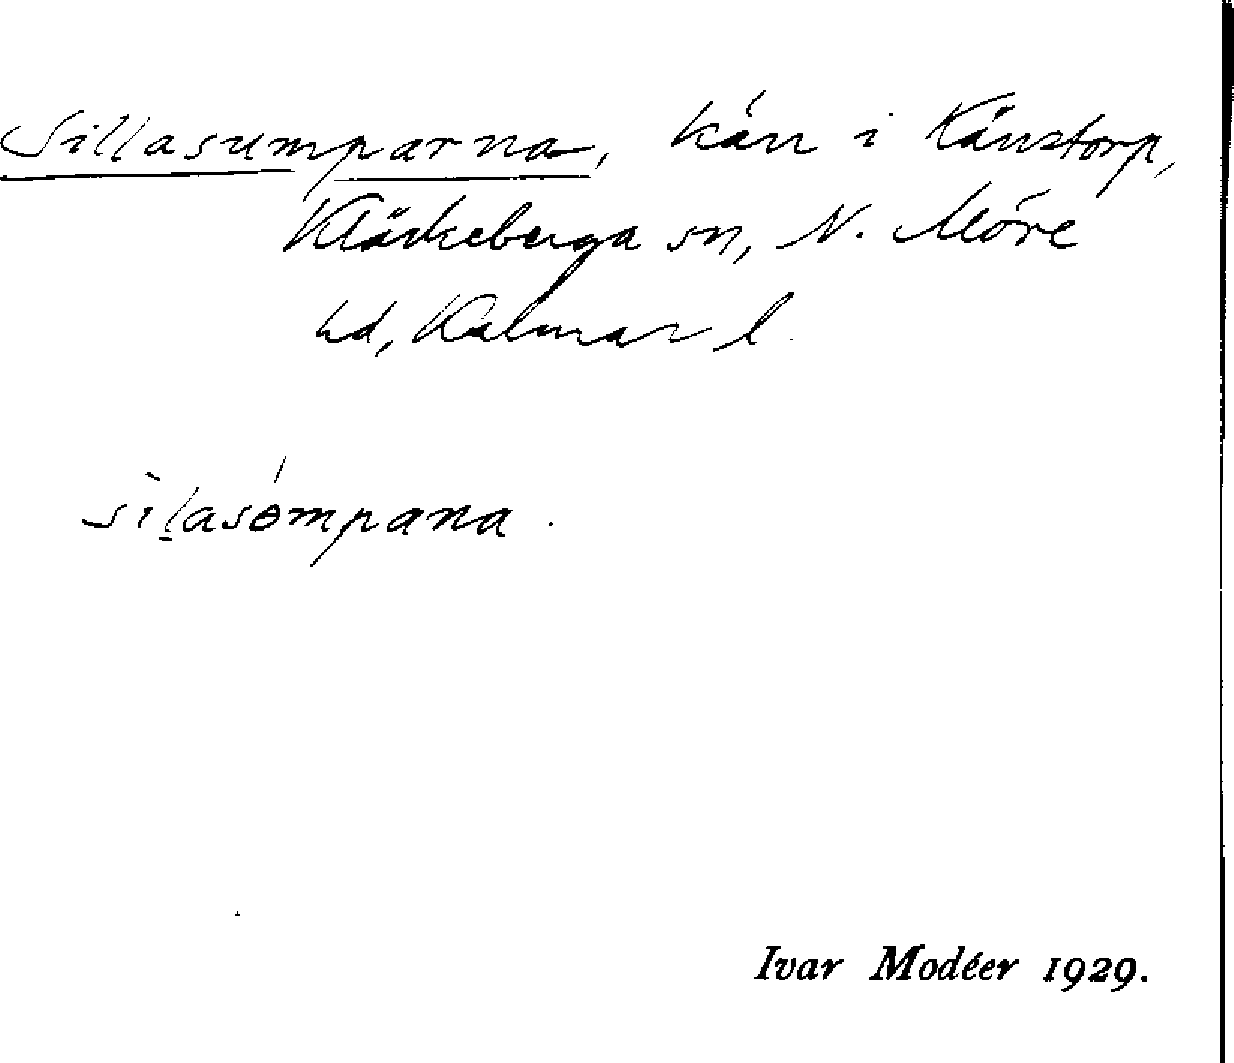 Sillasumparna, kärr i Kärrstorp,
Kläckeberga sn, N. Möre
hd, Kalmar l.
sìlasómpana.
Ivar Modéer 1929.